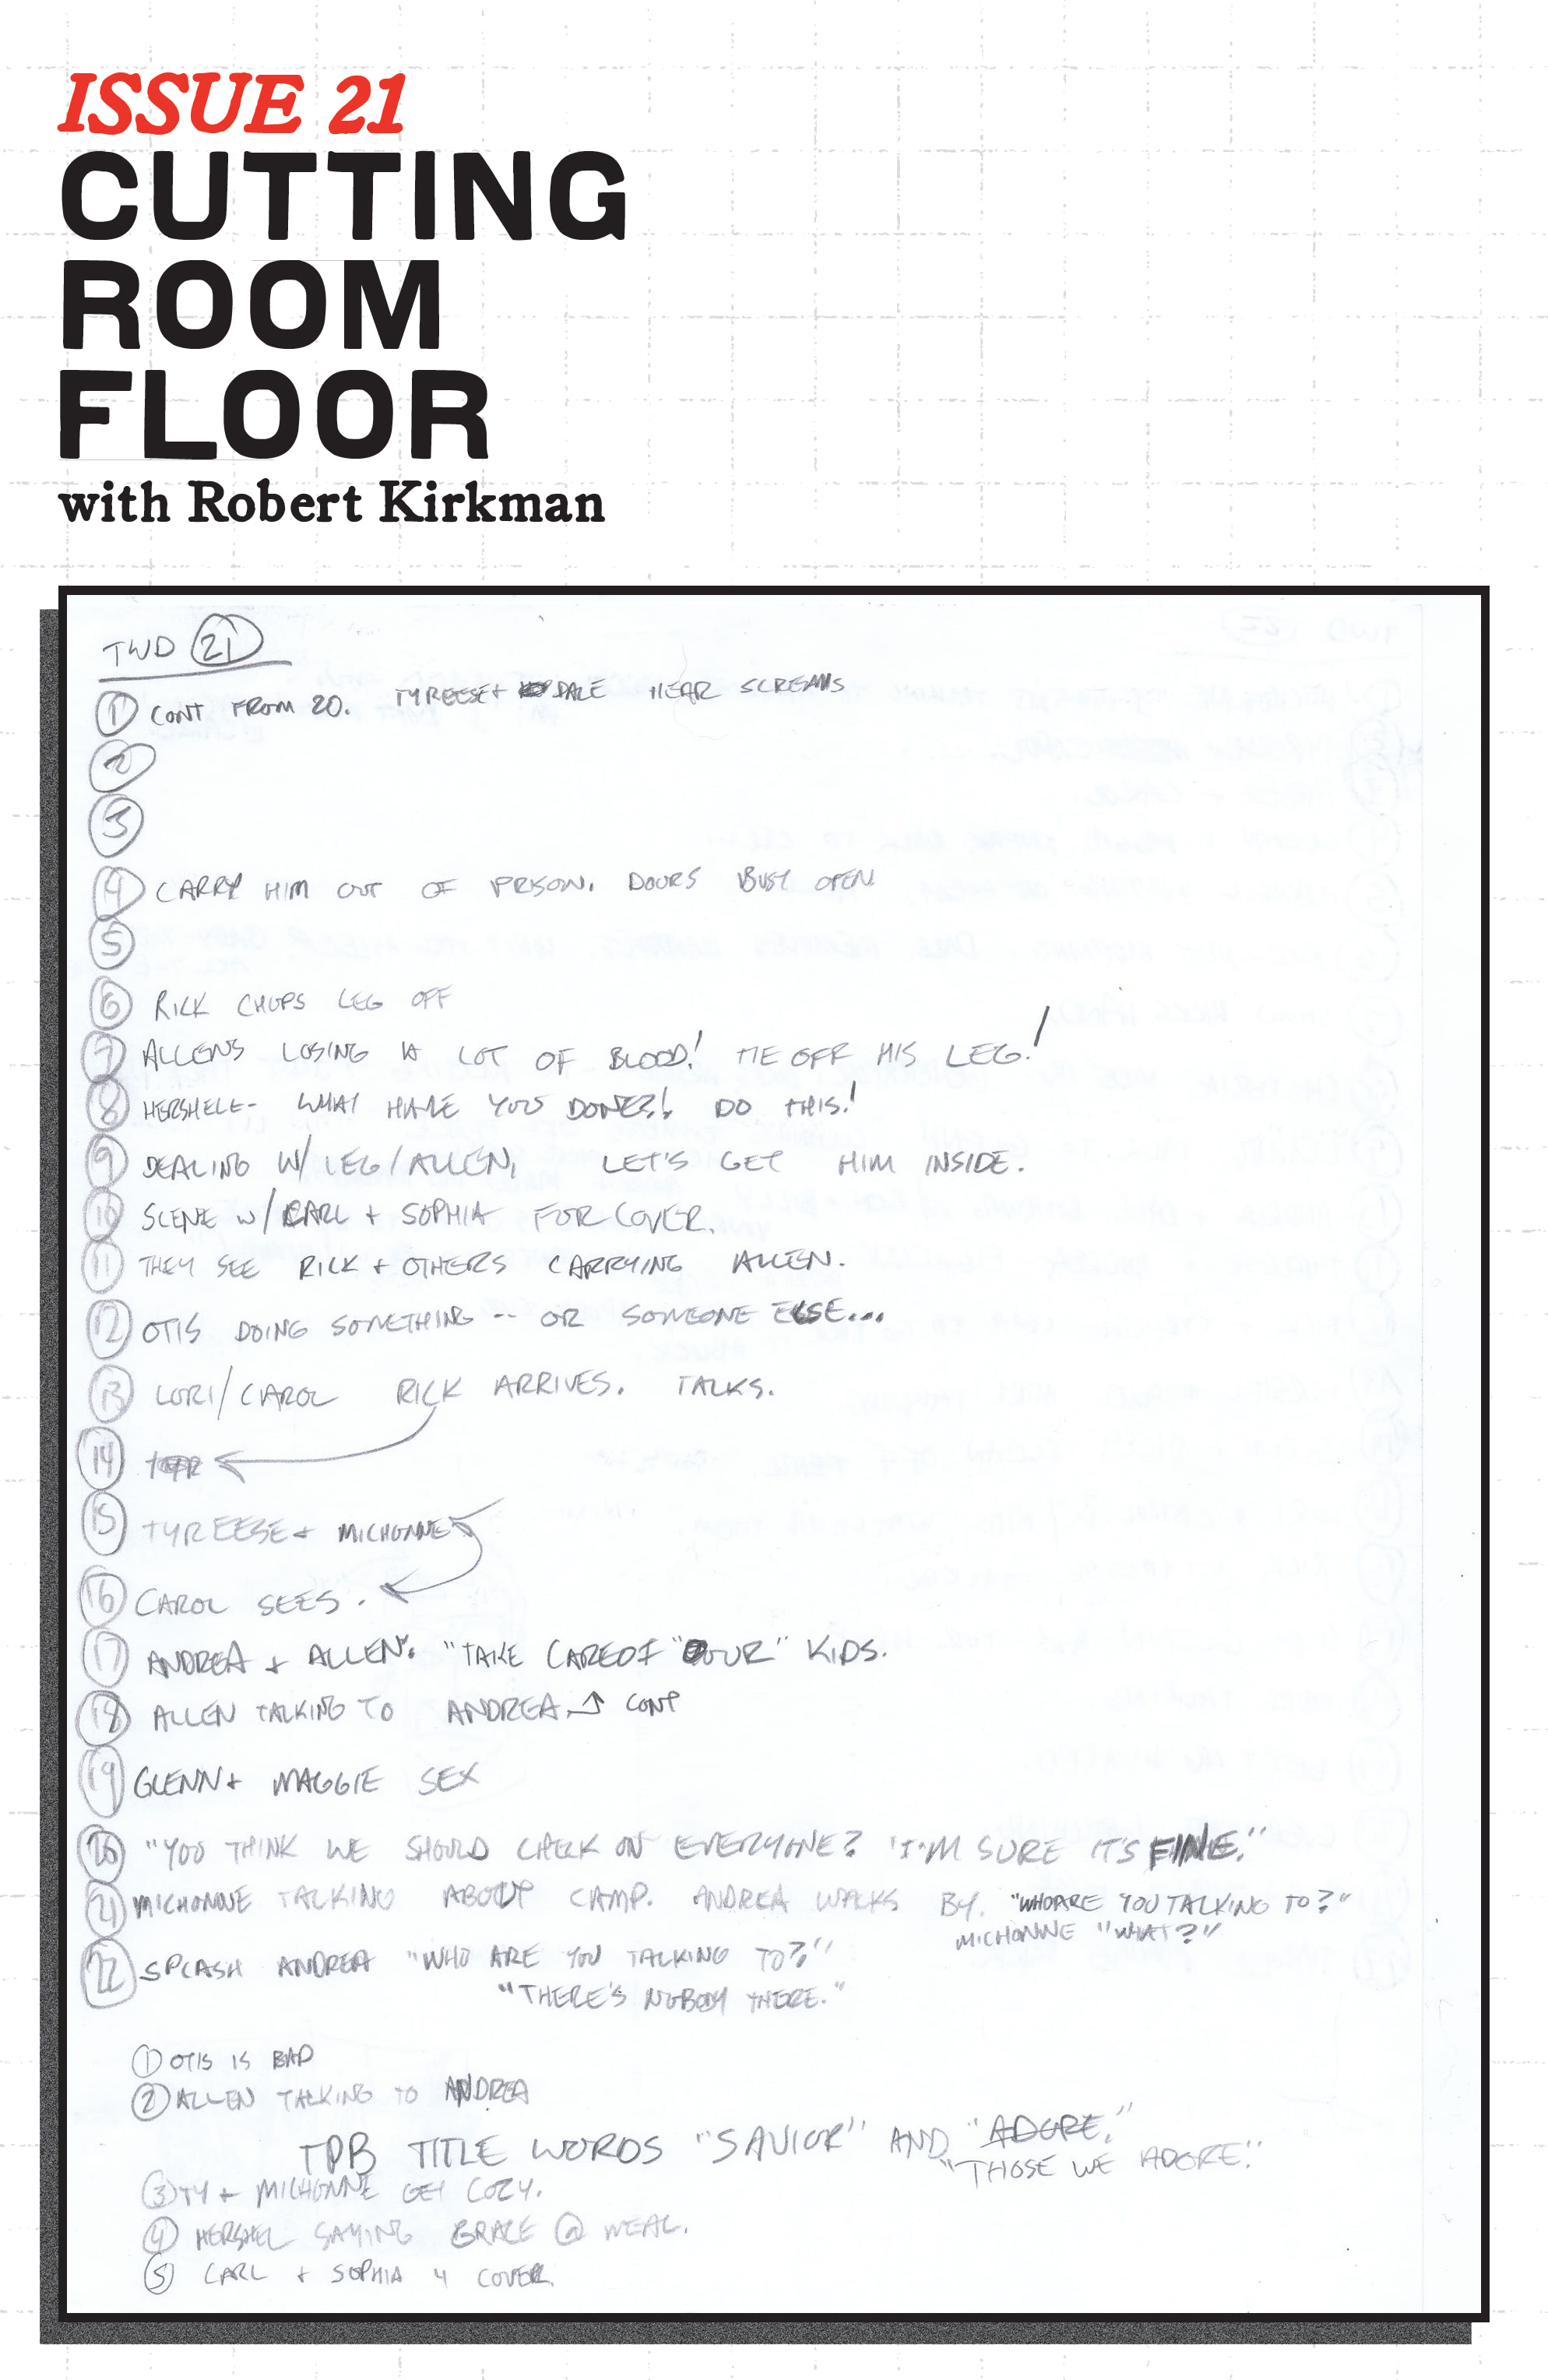 ISSUE 21
CUTTING
ROOM
FLOOR
with Robert Kirkman
TWD 21
1 CONT FROM 20. TYREESE + DALE HEAR SCREAMS
2
3
4 CARRY HIM OUT OF PRISON. DOORS BUST OPEN
5
6 RICK CHOPS LEG OFF
7 ALLEN'S LOSING A LOT OF BLOOD! TIE OFF HIS LEG!
8 HERSHEL- WHAT HAVE YOU DONE?! DO THIS!
9 DEALING W/ LEG/ALLEN, LET'S GET HIM INSIDE.
10 SCENE W/ CARL + SOPHIA FOR COVER.
11 THEY SEE RICK + OTHERS CARRYING ALLEN.
12 OTIS DOING SOMETHING -- OR SOMEONE ELSE...
13 LORI/CAROL RICK ARRIVES. TALKS.
14
15 TYREESE + MICHONNE
16 CAROL SEES.
17 ANDREA + ALLEN. "TAKE CARE OF "OUR" KIDS.
18 ALLEN TALKING TO ANDREA CONT
19 GLENN + MAGGIE SEX
20 "YOU THINK WE SHOULD CHECK ON EVERYONE? 'I'M SURE IT'S FINE."
21 MICHONNE TALKING ABOUT CAMP. ANDREA WALKS BY. "WHO ARE YOU TALKING TO?"
MICHONNE "WHAT?"
22 SPLASH ANDREA "WHO ARE YOU TALKING TO?"
"THERE'S NOBODY THERE."
1 OTIS IS BAD
2 ALLEN TALKING TO ANDREA
TPB TITLE WORDS "SAVIOR" AND "ADORE."
"THOSE WE ADORE."
3 TY + MICHONNE GET COZY.
4 HERSHEL SAYING GRACE @ MEAL.
5 CARL + SOPHIA 4 COVER.